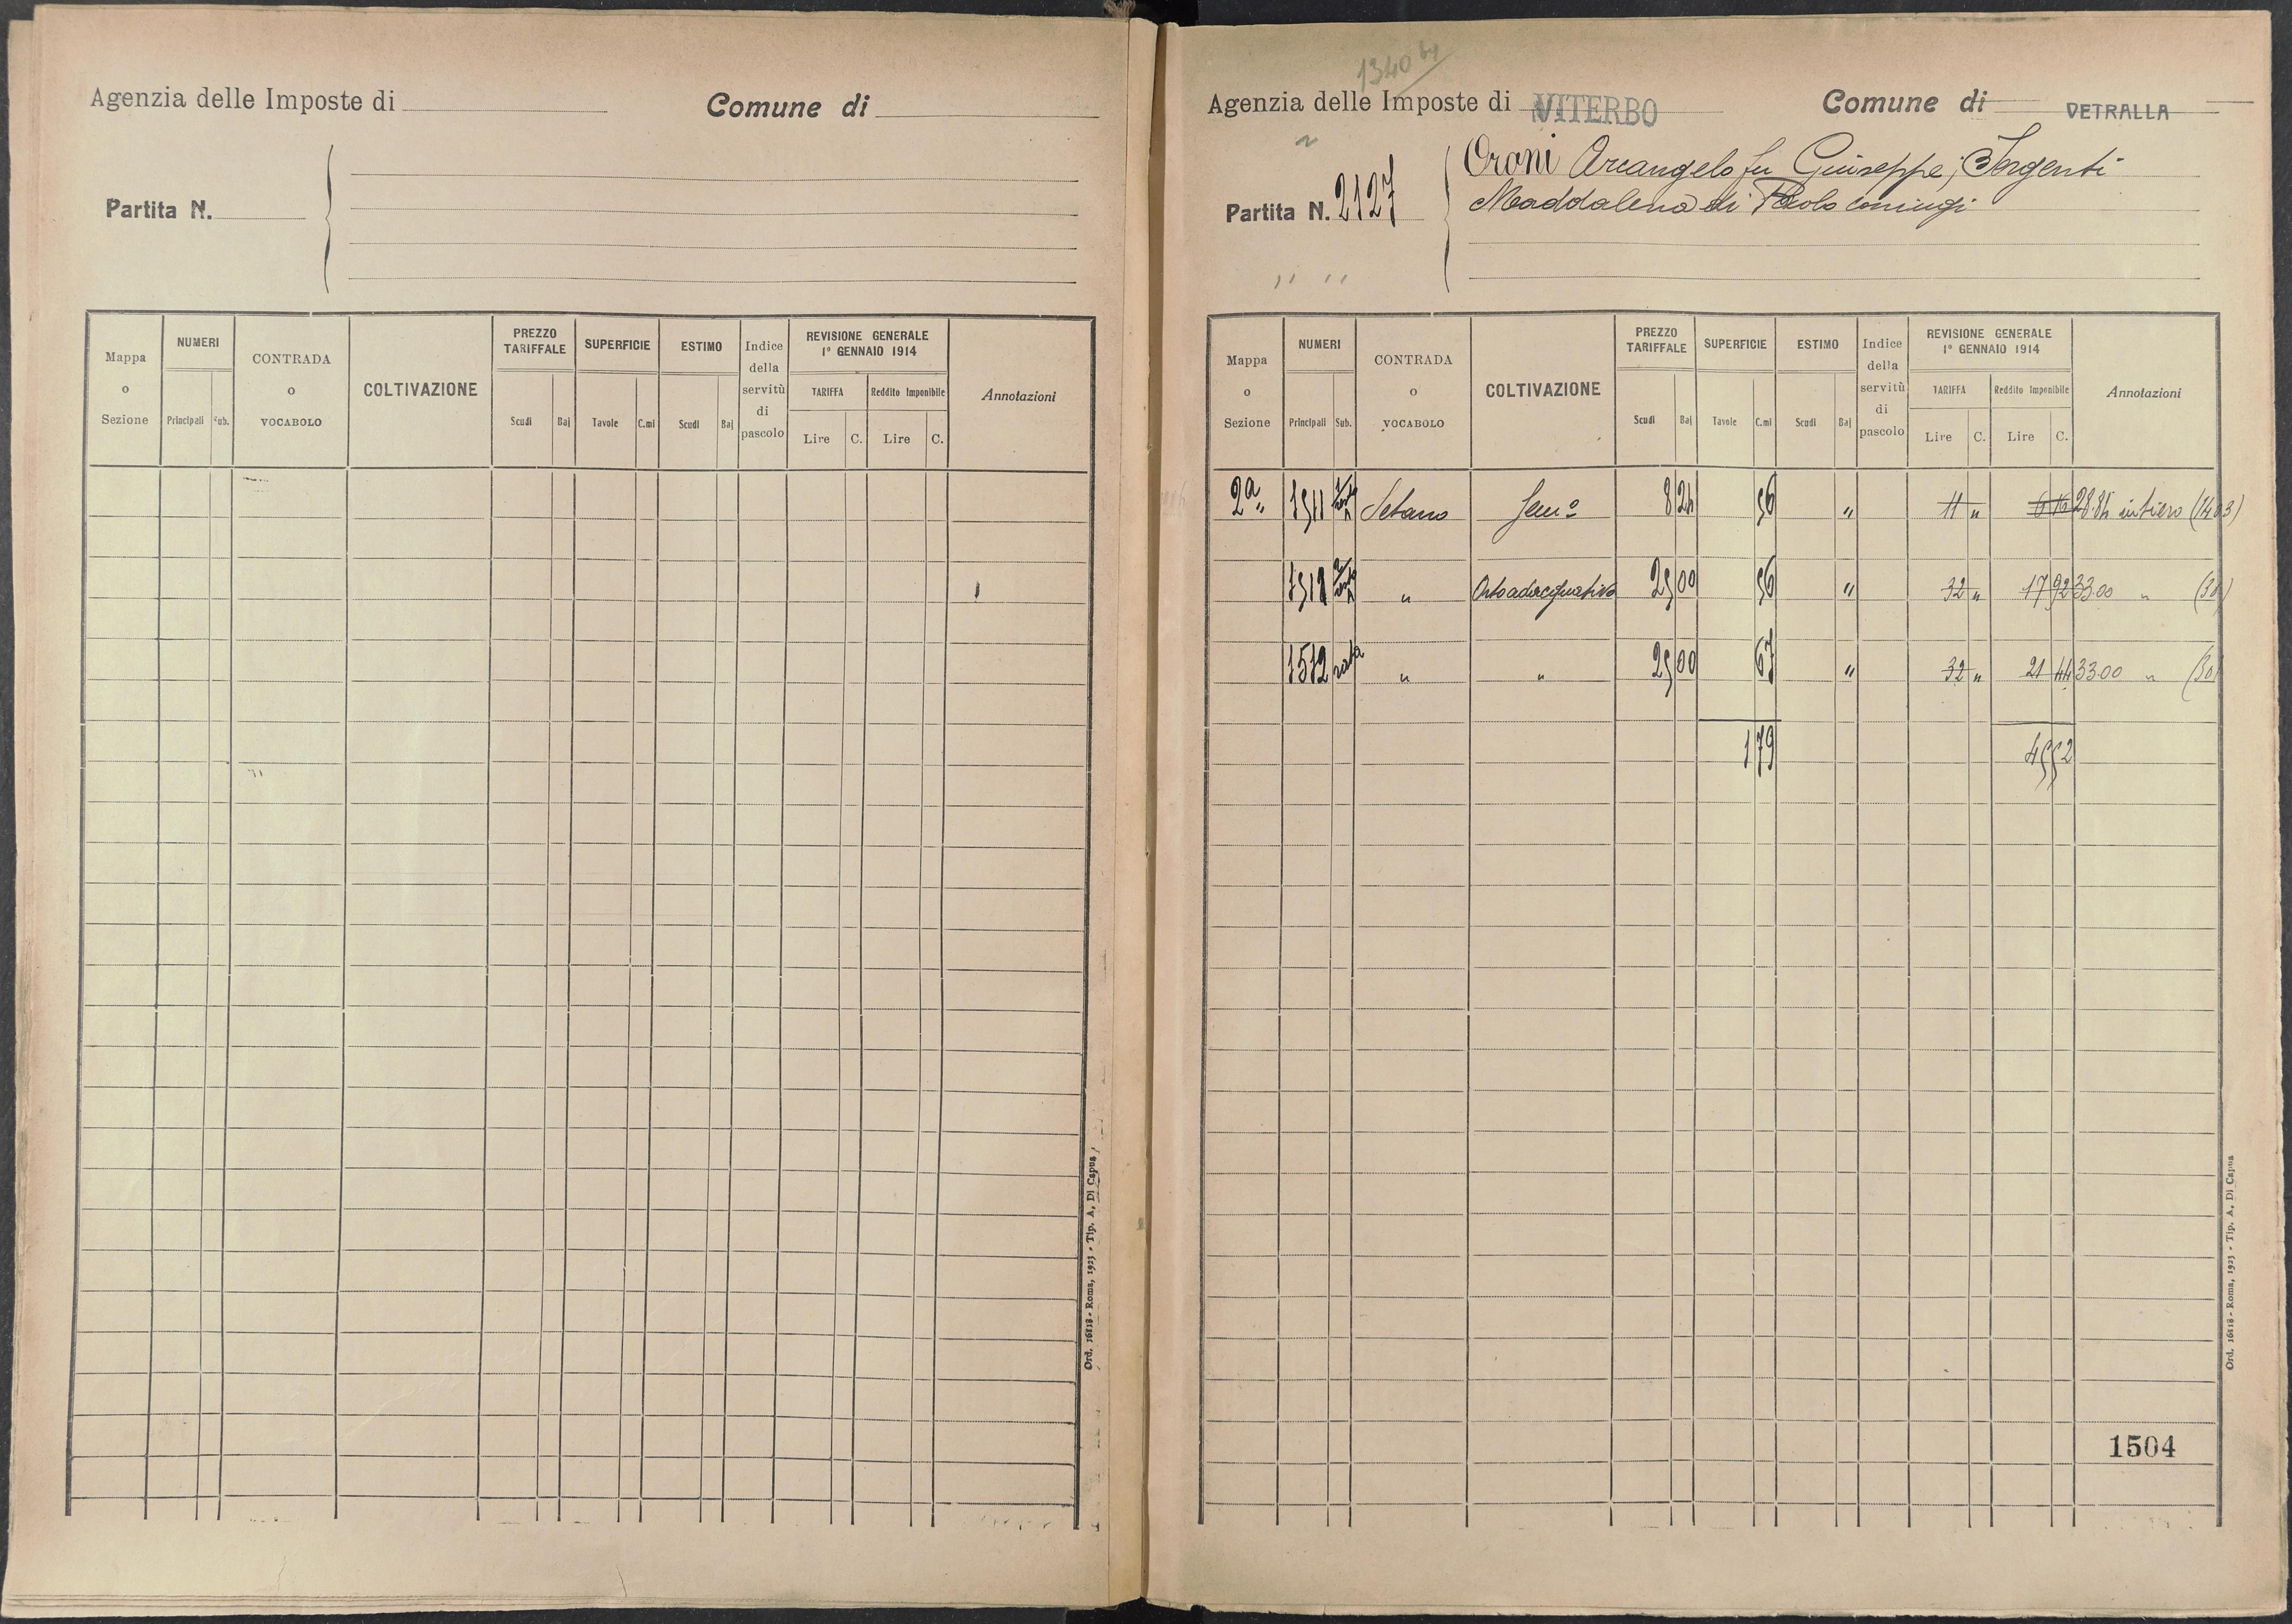 Agenzia delle Imposte di
Comune di
Partita N.
Mappa o Sezione
NUMERI
Principali
Sub.
CONTRADA o VOCABOLO
COLTIVAZIONE
PREZZO TARIFFALE
Scudi
Baj
SUPERFICIE
Tavole
C.mi
ESTIMO
Scudi
Baj
Indice della servitù di pascolo
REVISIONE GENERALE
1º GENNAIO 1914
TARIFFA
Reddito Imponibile
Lire
C.
Lire
C.
Annotazioni
Ord. 16818 - Roma, 1923 - Tip. A. Di Capua
1340
Agenzia delle Imposte di VITERBO
Comune di VETRALLA
Partita N. 2127
Orani Arcangelo fu Giuseppe; Argenti
Maddalena di Paolo coniugi
Mappa o Sezione
NUMERI
Principali
Sub.
CONTRADA o VOCABOLO
COLTIVAZIONE
PREZZO TARIFFALE
Scudi
Baj
SUPERFICIE
Tavole
C.mi
ESTIMO
Scudi
Baj
Indice della servitù di pascolo
REVISIONE GENERALE
1º GENNAIO 1914
TARIFFA
Reddito Imponibile
Lire
C.
Lire
C.
Annotazioni
2ª 1511 Setano Semº 8 24 56 " 11 " 6 16 28.85 intiero (1403)
1511 " Ortoadacquativo 25 00 56 " 32 " 17 92 33.00 " (30)
1512 rata " " 25 00 67 " 32 " 21 44 33.00 " (30)
1 79 45 52
1504
Ord. 16818 - Roma, 1923 - Tip. A. Di Capua